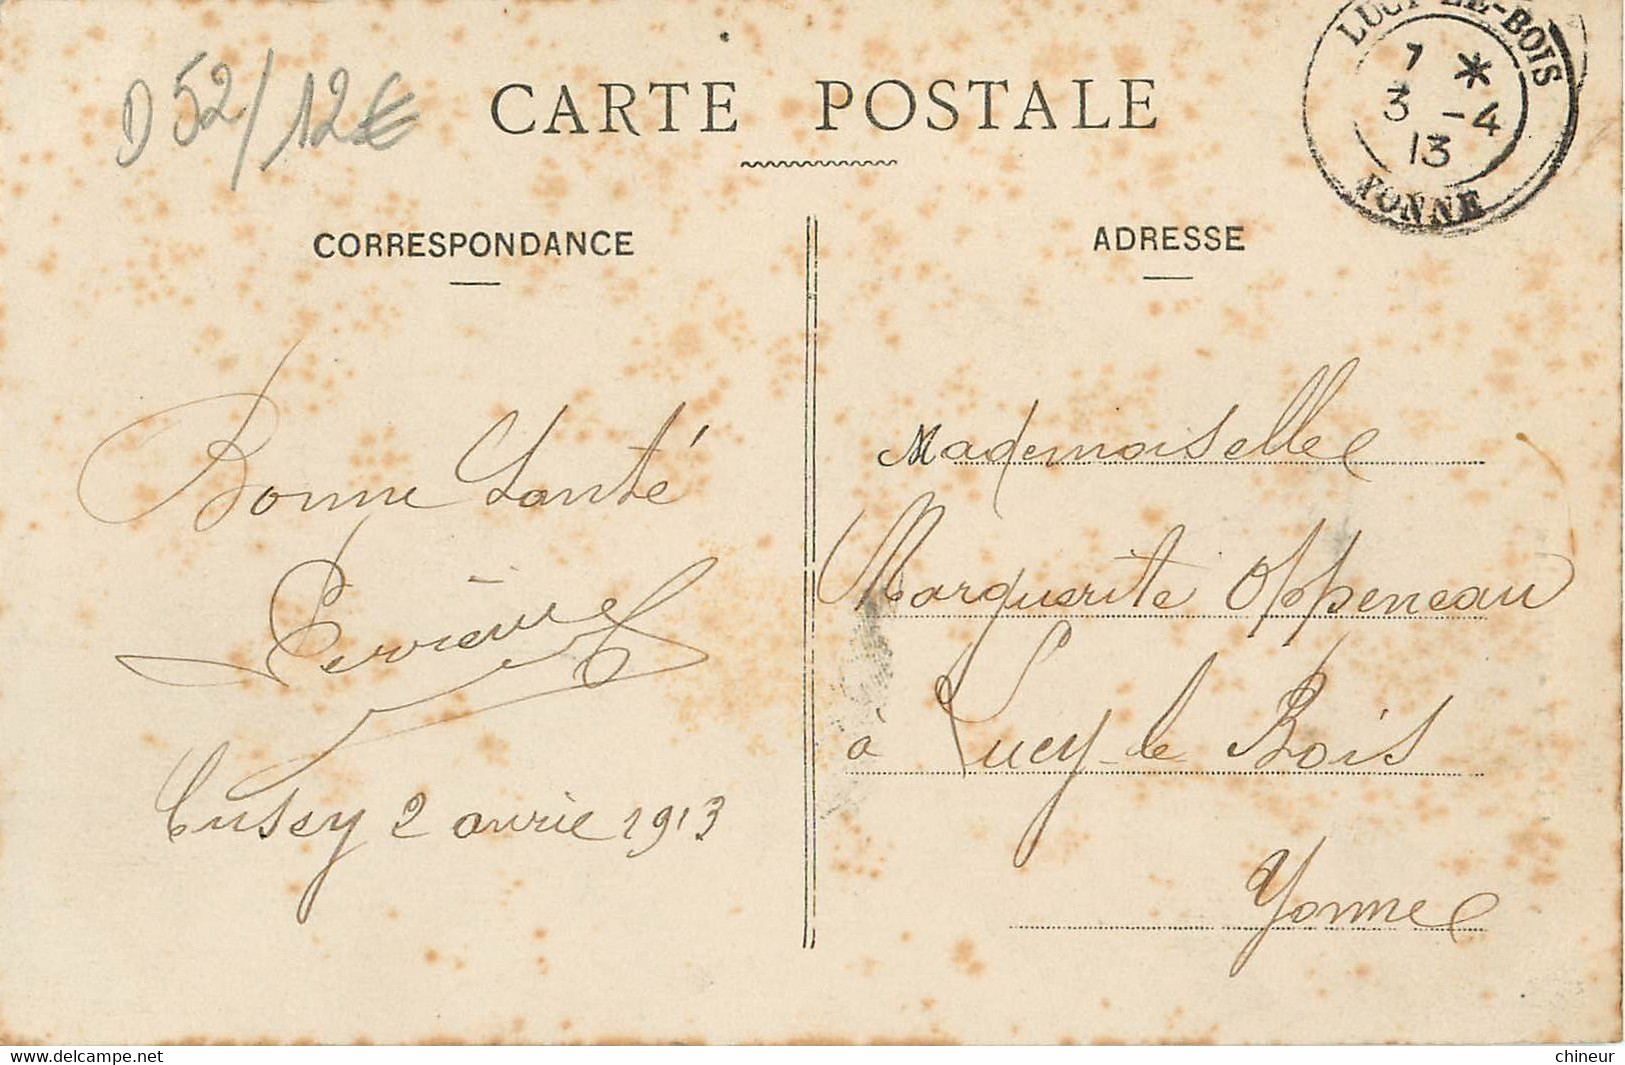 D 52/12€
CARTE POSTALE
LUCY-LE-BOIS
7 *
3 -4
13
YONNE
CORRESPONDANCE
ADRESSE
Bonne Santé
Cusey 2 avril 1913
Mademoiselle
Marguerite Oppeneau
à Lucy-le Bois
Yonne
www.delcampe.net
chineur